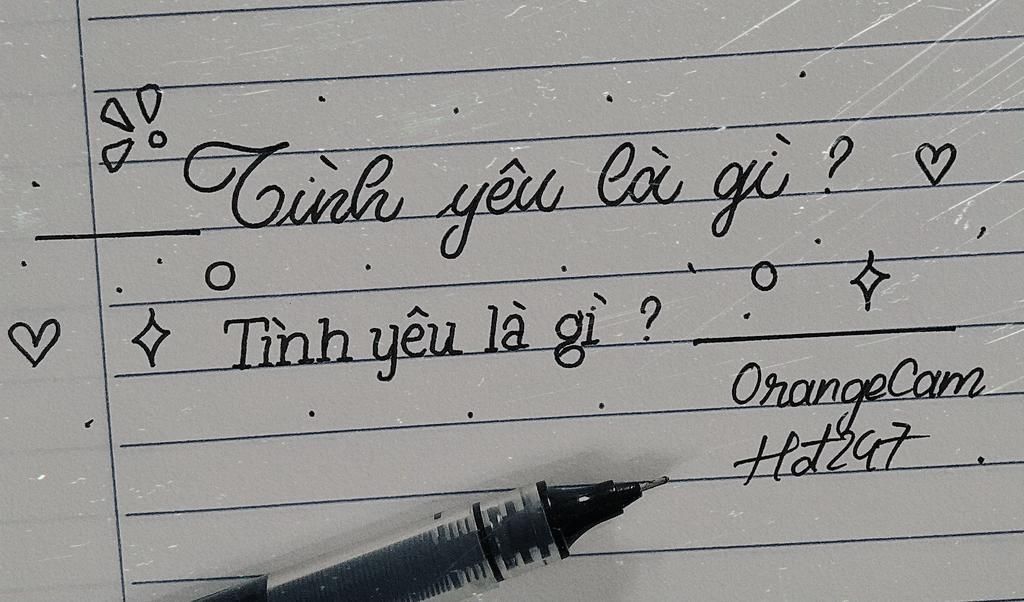 Tình yêu là gì ?
Tình yêu là gì ?
OrangeCam
Hd247